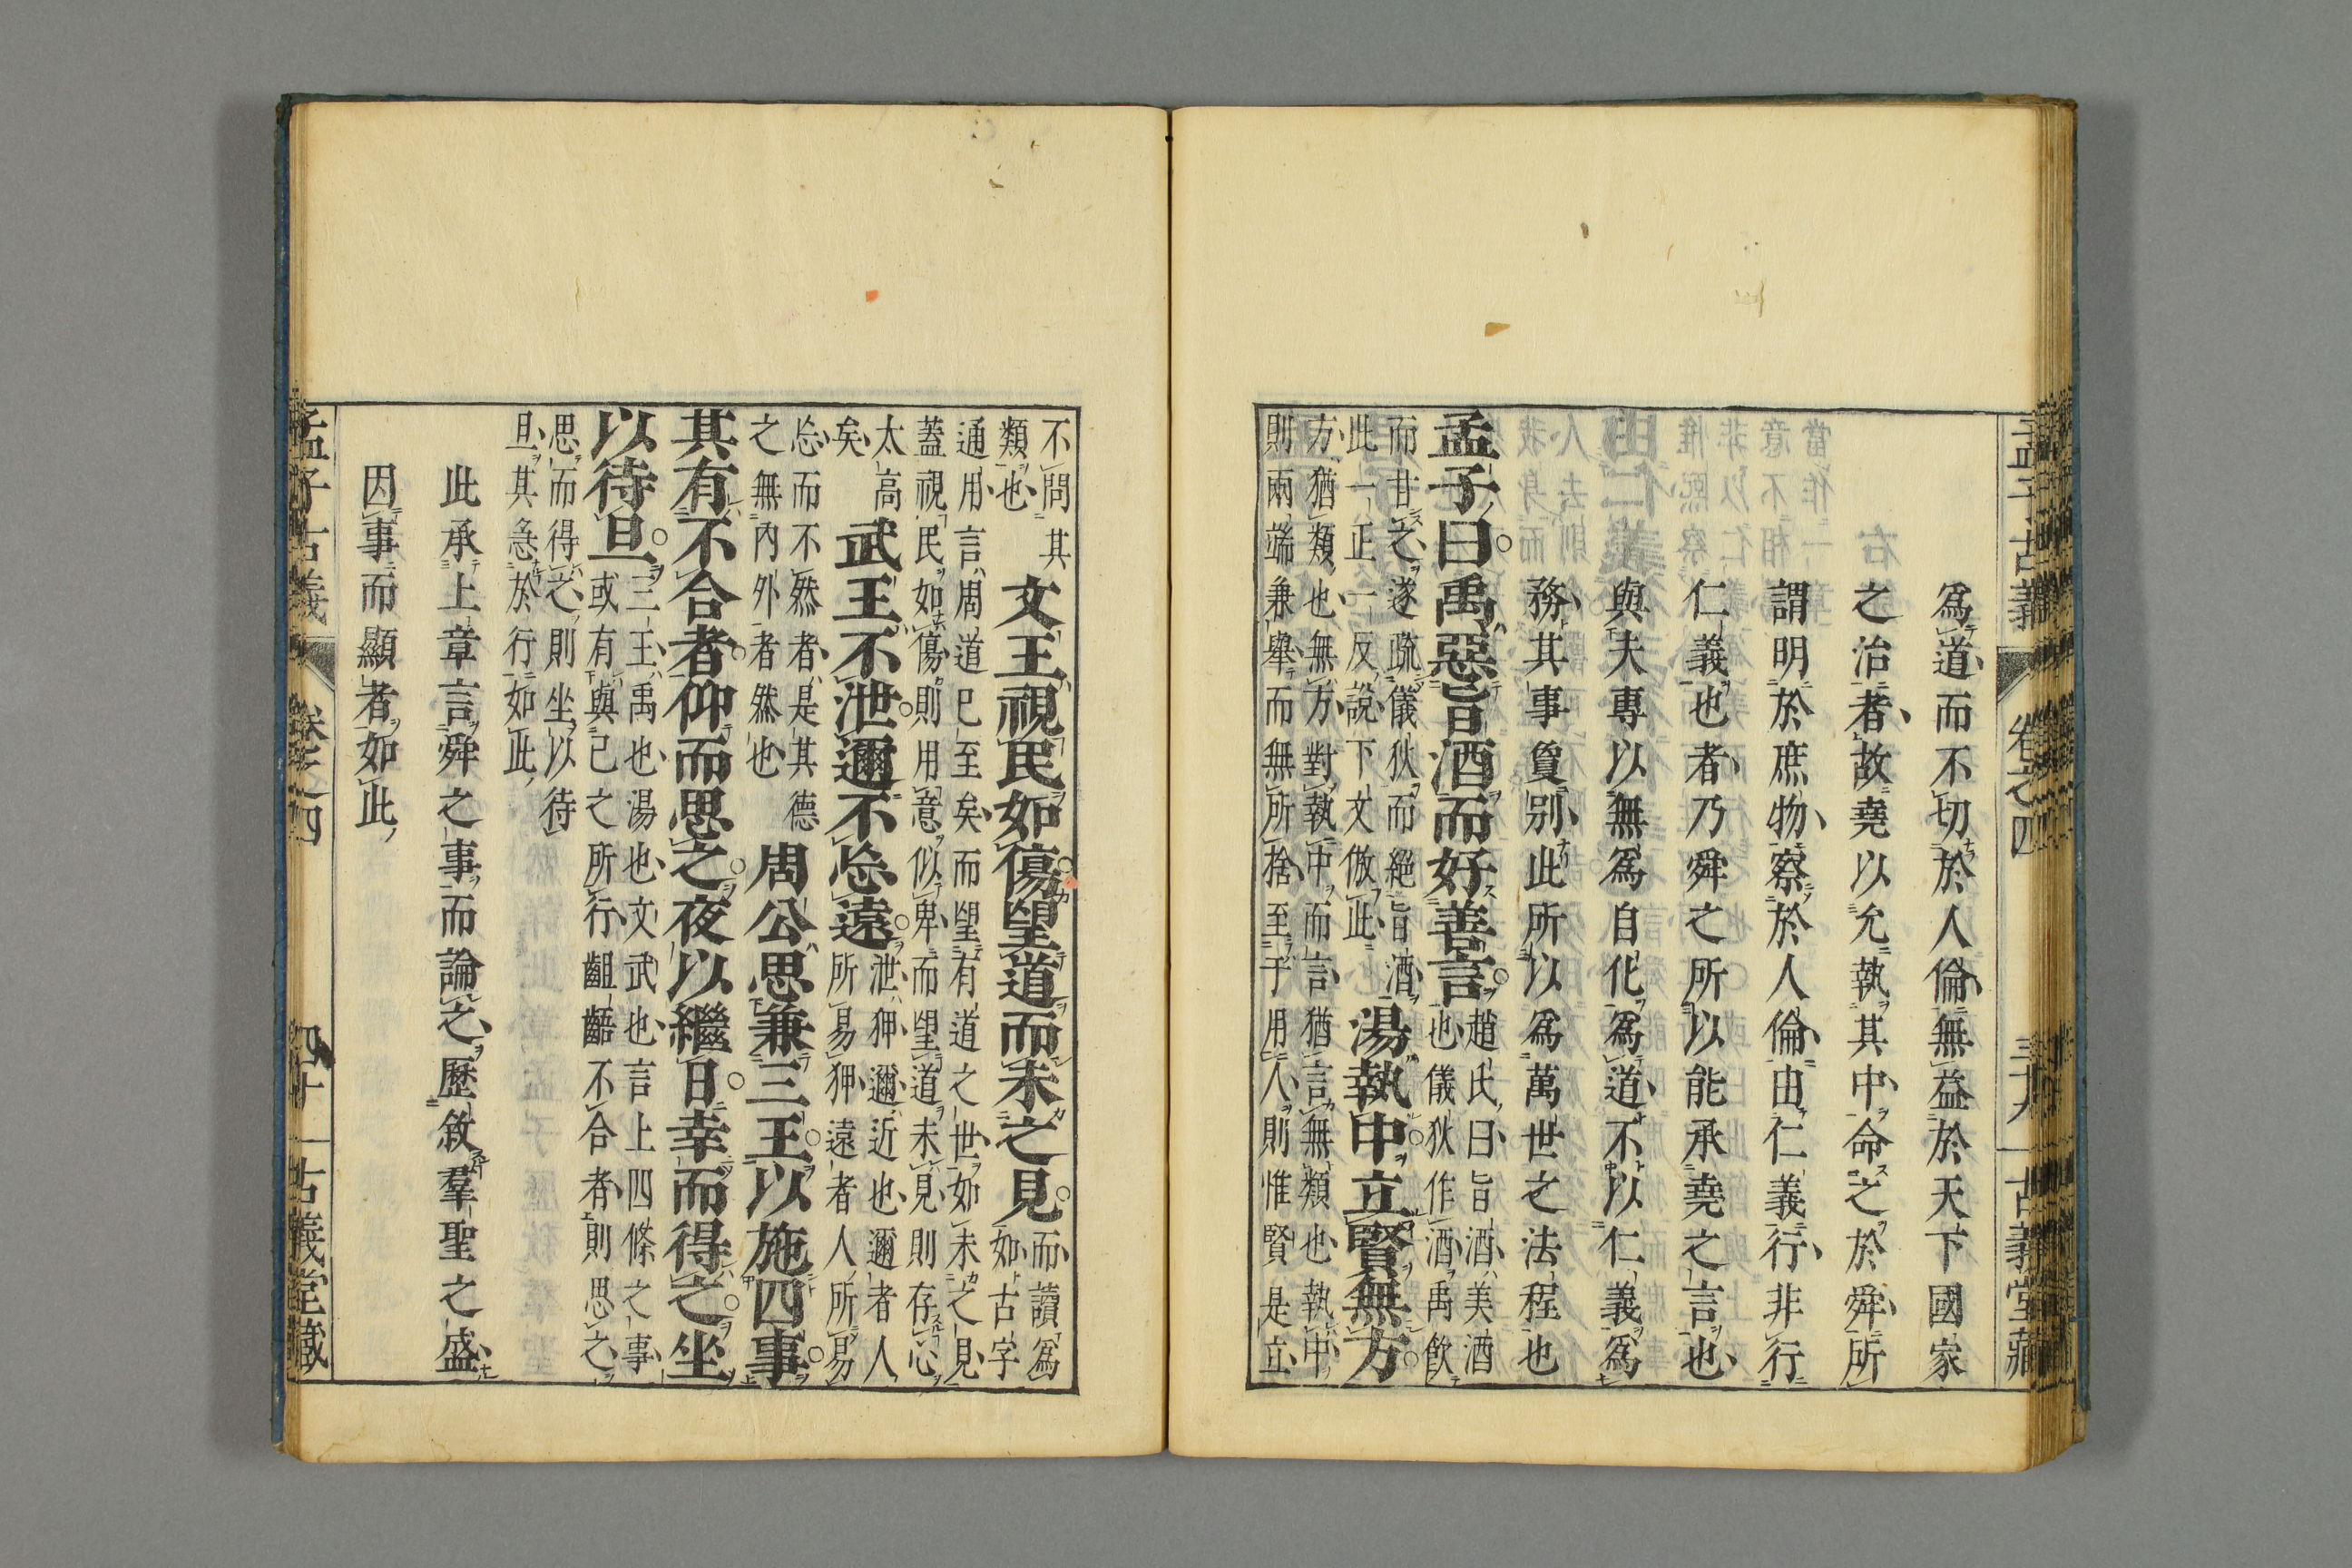 爲道而不切於人倫無益於天下國家
之治者故堯以允執其中命之於舜所
謂明於庶物察於人倫由仁義行非行
仁義也者乃舜之所以能承堯之言也
與夫專以無爲自化爲道不以仁義爲
務其事夐別此所以爲萬世之法程也
孟子曰禹惡旨酒而好善言趙氏曰旨酒美酒
也儀狄作酒禹飮
而甘之遂疏儀狄而絕旨酒
此一正一反說下文倣此
湯執中立賢無方
方猶類也無方對執中而言猶言無類也執中
則兩端兼舉而無所捨至于用人則惟賢是立
不問其
類也
文王視民如傷望道而未之見而讀爲
如古字
通用言周道已至矣而望有道之世如未之見
蓋視民如傷則用意似卑而望道未見則存心
太高
矣
武王不泄邇不忘遠泄狎邇近也邇者人
所易狎遠者人所易
忘而不然者是其德
之無內外者然也
周公思兼三王以施四事
其有不合者仰而思之夜以繼日幸而得之坐
以待旦三王禹也湯也文武也言上四條之事
或有與己之所行齟齬不合者則思之
思而得之則坐以待
旦其急於行如此
此承上章言舜之事而論之歷敘羣聖之盛
因事而顯者如此
孟子古義
卷之四
四十
古義堂藏